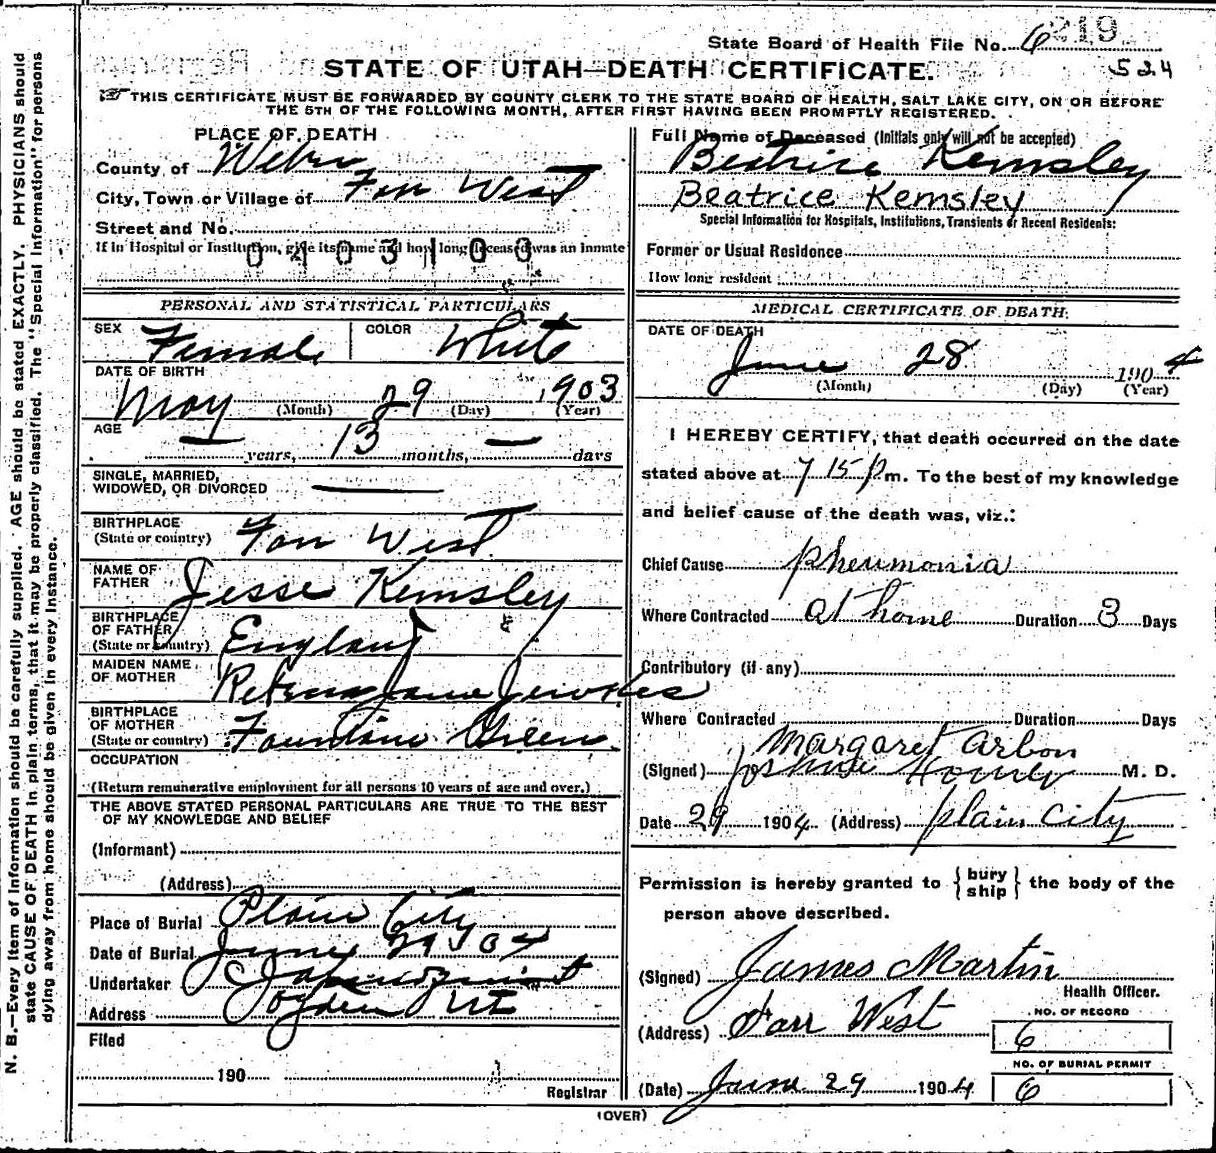 219
State Board of Health File No. 6
524
STATE OF UTAH—DEATH CERTIFICATE.
THIS CERTIFICATE MUST BE FORWARDED BY COUNTY CLERK TO THE STATE BOARD OF HEALTH, SALT LAKE CITY, ON OR BEFORE
THE 5TH OF THE FOLLOWING MONTH, AFTER FIRST HAVING BEEN PROMPTLY REGISTERED.
PLACE OF DEATH
County of Weber
City, Town or Village of Farr West
Street and No.
If in Hospital or Institution, give its name and how long deceased was an inmate
0203100
PERSONAL AND STATISTICAL PARTICULARS
SEX Female COLOR White
DATE OF BIRTH
May 29 1903
(Month) (Day) (Year)
AGE
— years, 13 months, — days
SINGLE, MARRIED,
WIDOWED, OR DIVORCED —
BIRTHPLACE
(State or country) Farr West
NAME OF
FATHER Jesse Kemsley
BIRTHPLACE
OF FATHER
(State or country) England
MAIDEN NAME
OF MOTHER Jane
BIRTHPLACE
OF MOTHER
(State or country) Fountain Green
OCCUPATION
(Return remunerative employment for all persons 10 years of age and over.)
THE ABOVE STATED PERSONAL PARTICULARS ARE TRUE TO THE BEST
OF MY KNOWLEDGE AND BELIEF
(Informant)
(Address)
Place of Burial Plain City
Date of Burial June 29 04
Undertaker
Address Ogden Ut
Filed
190
Registrar
Full Name of Deceased (Initials only will not be accepted)
Beatrice Kemsley
Beatrice Kemsley
Special Information for Hospitals, Institutions, Transients or Recent Residents:
Former or Usual Residence
How long resident
MEDICAL CERTIFICATE OF DEATH.
DATE OF DEATH
June 28 1904
(Month) (Day) (Year)
I HEREBY CERTIFY, that death occurred on the date
stated above at 7 15 p m. To the best of my knowledge
and belief cause of the death was, viz.:
Chief Cause pneumonia
Where Contracted at home Duration 3 Days
Contributory (if any)
Where Contracted Duration Days
Margaret Arbon
(Signed) M. D.
Date 29 1904 (Address) plain City
Permission is hereby granted to {bury ship} the body of the
person above described.
(Signed) James Martin
Health Officer.
(Address) Farr West
NO. OF RECORD
6
NO. OF BURIAL PERMIT
(Date) June 29 1904 6
(OVER)
N. B.—Every item of information should be carefully supplied. AGE should be stated EXACTLY. PHYSICIANS should
state CAUSE OF DEATH in plain terms, that it may be properly classified. The "Special Information" for persons
dying away from home should be given in every instance.